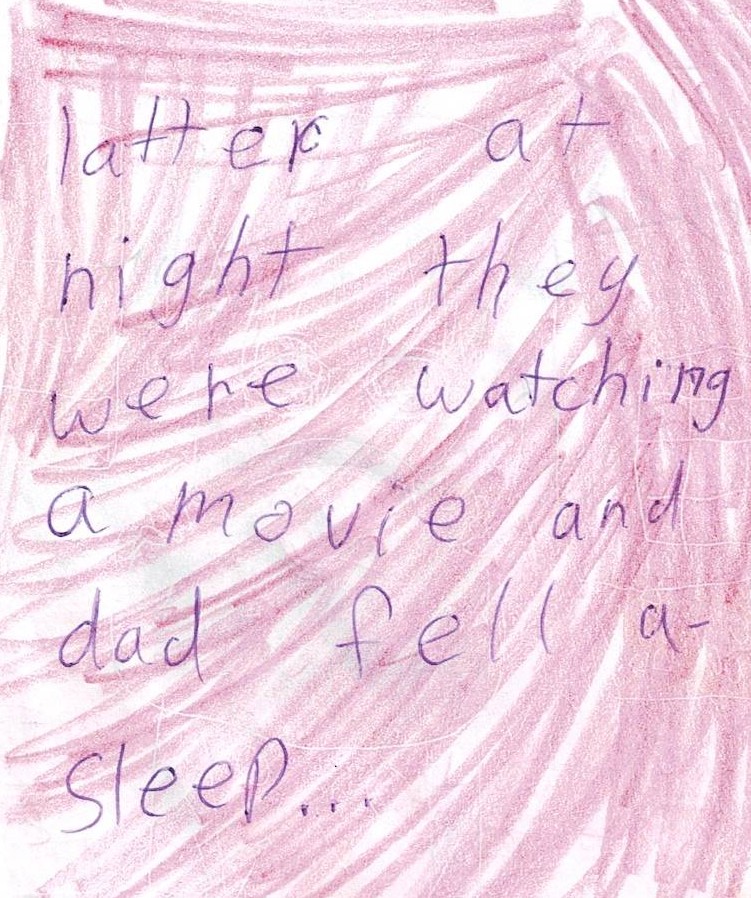 latter at
night they
were watching
a movie and
dad fell a-
sleep...